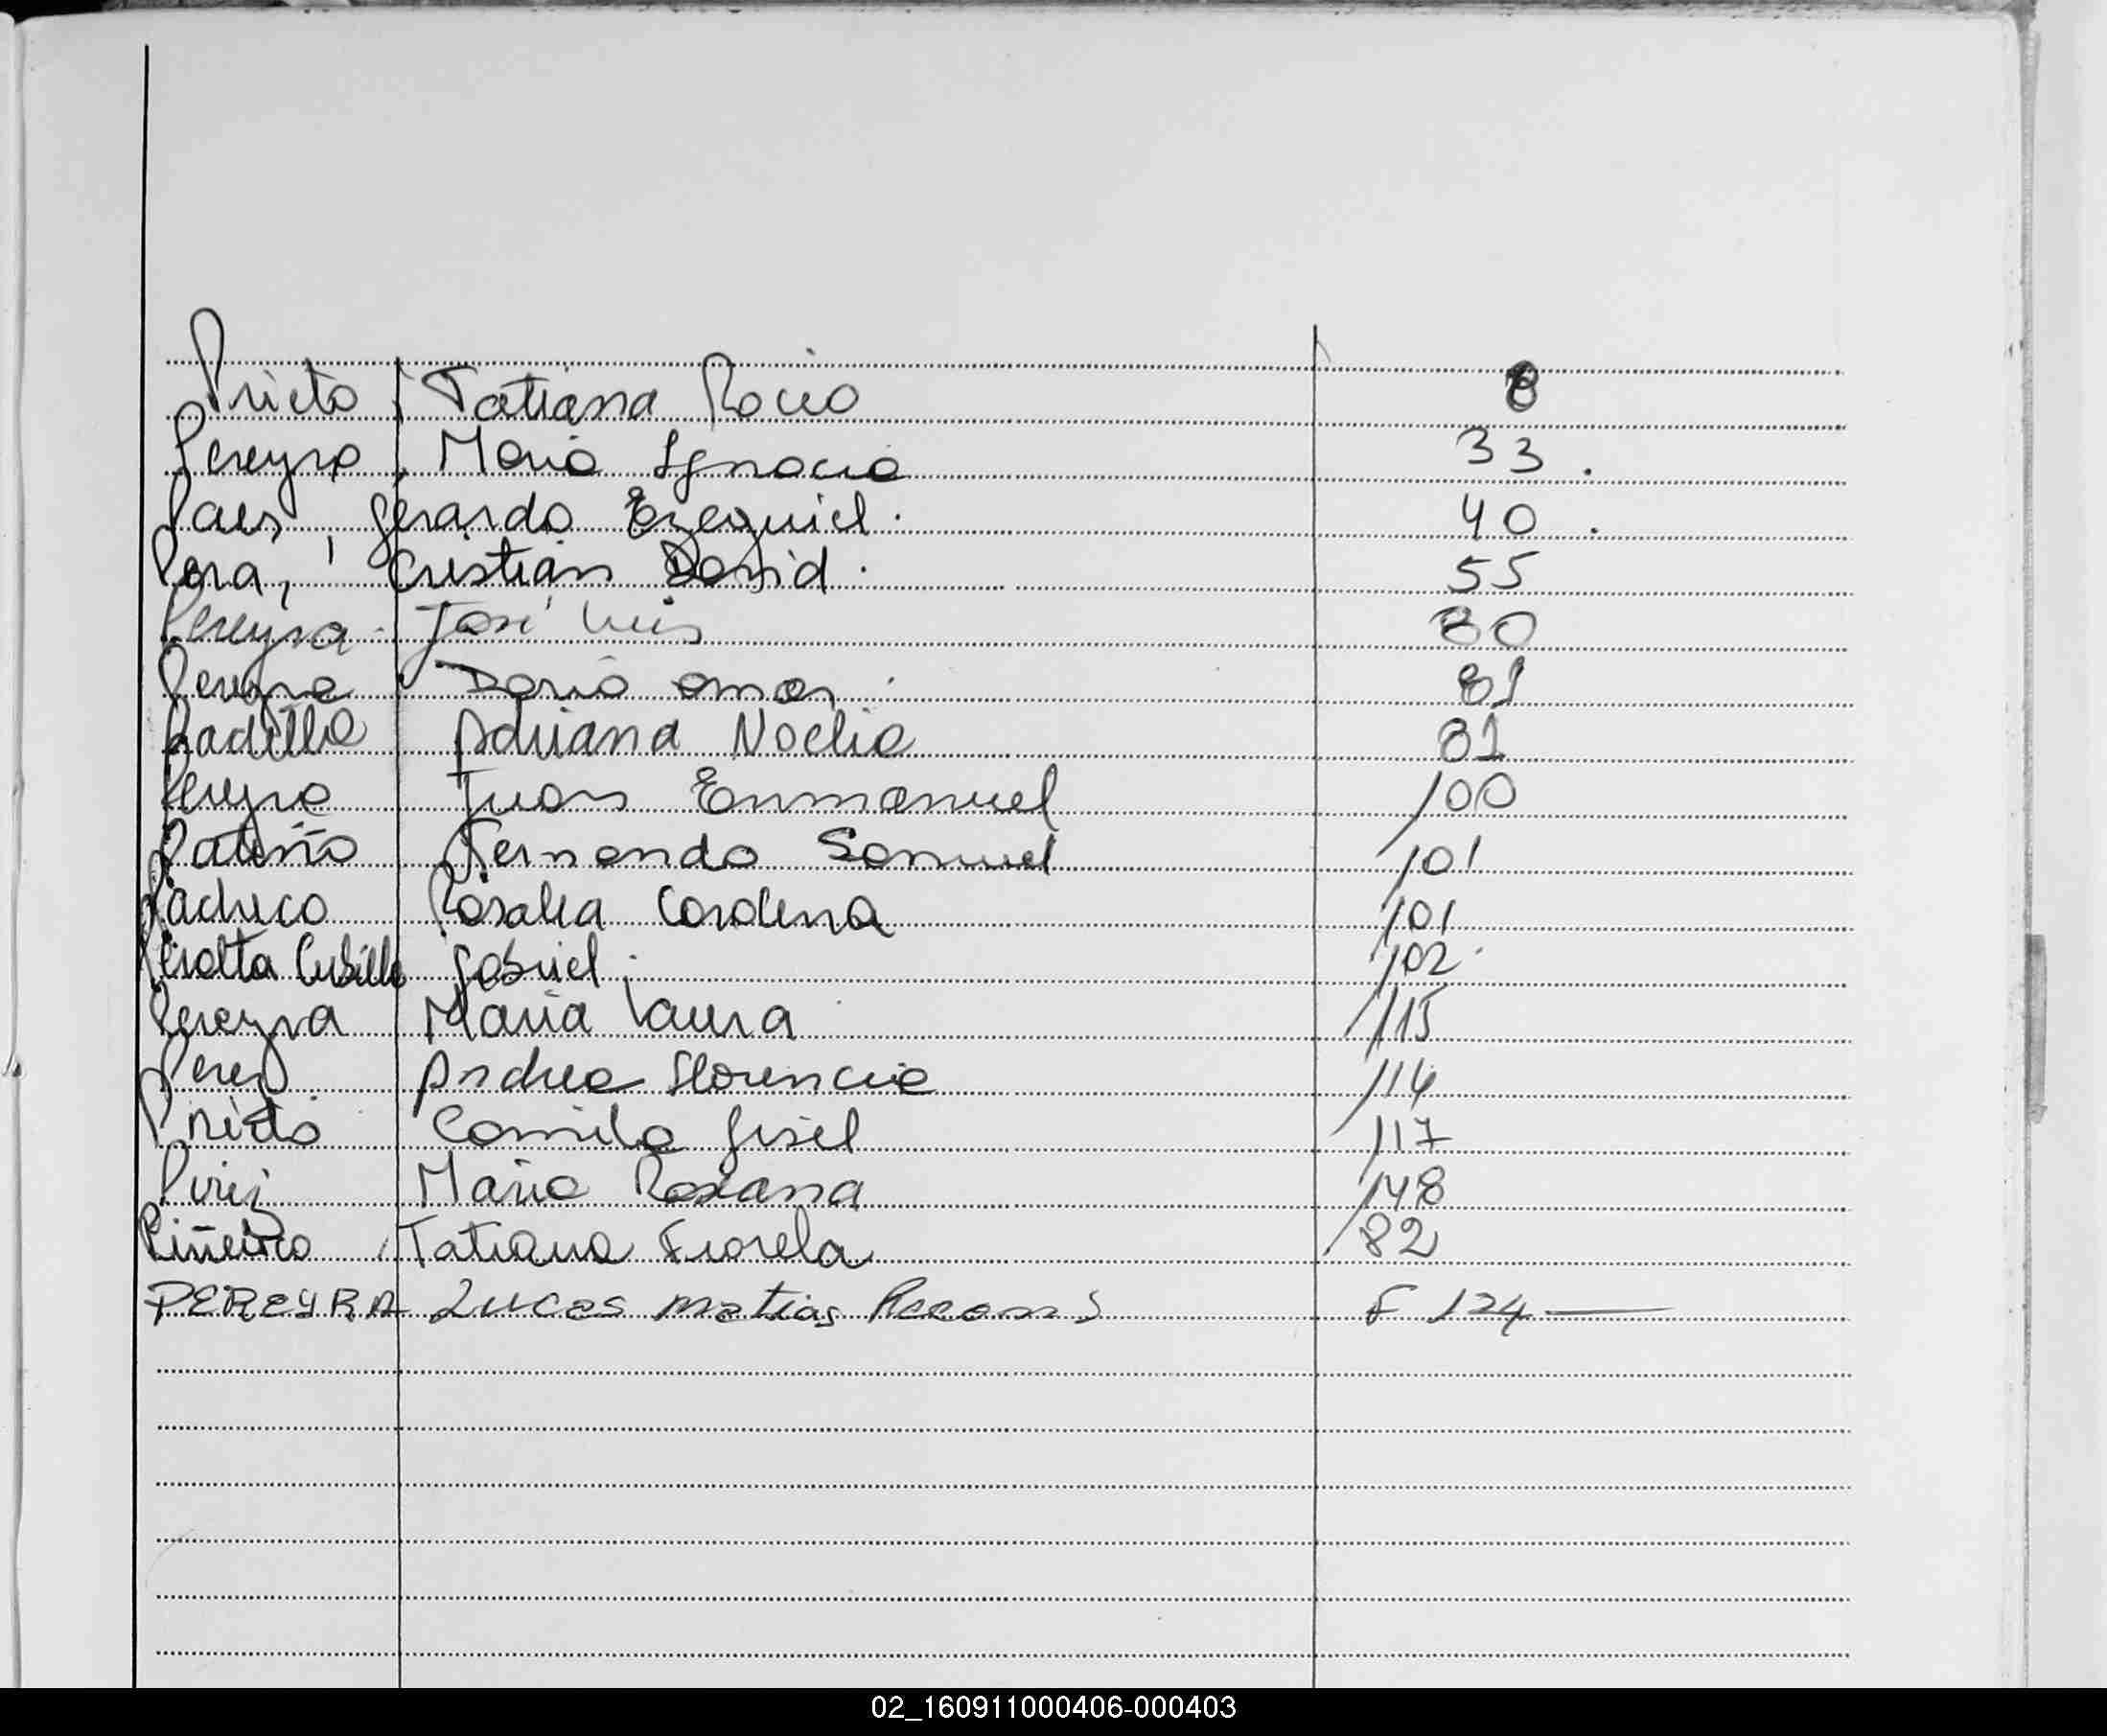 Prieto, Tatiana Rocio 8
Pereyra, Maria Ignacia 33.
Paes, Gerardo Ezequiel. 40.
Pora, Cristian David. 55
Pereyra - José Luis 80
Pereyra Dario Omar. 81
Padilla Adriana Noelia 81
Pereyra Juan Enmanuel 100
Patiño Fernando Samuel 101
Pacheco Rosalia Carolina 101
Peralta Cubillo Gabriel. 102
Pereyra Maria Laura 115
Perez Andrea Florencia 114
Prieto Camila Gisel 117
Piriz Maria Roxana 148
Piñeiro Tatiana Fiorela 82
PEREYRA Lucas Matias F 124
02_160911000406-000403